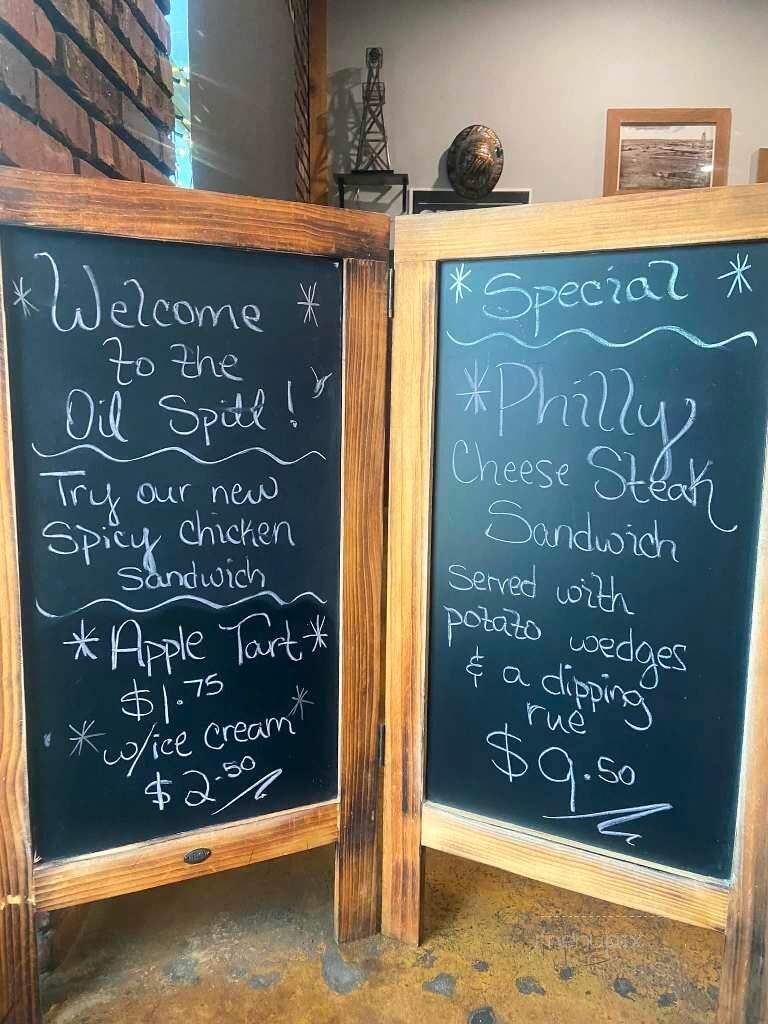 * Welcome *
to the
Oil Spill!
Try our new
Spicy chicken
Sandwich
* Apple Tart *
$1.75
* w/ice cream *
$2.50
* Special *
* Philly
Cheese Steak
Sandwich
Served with
potato wedges
& a dipping
rue
$9.50
menupix